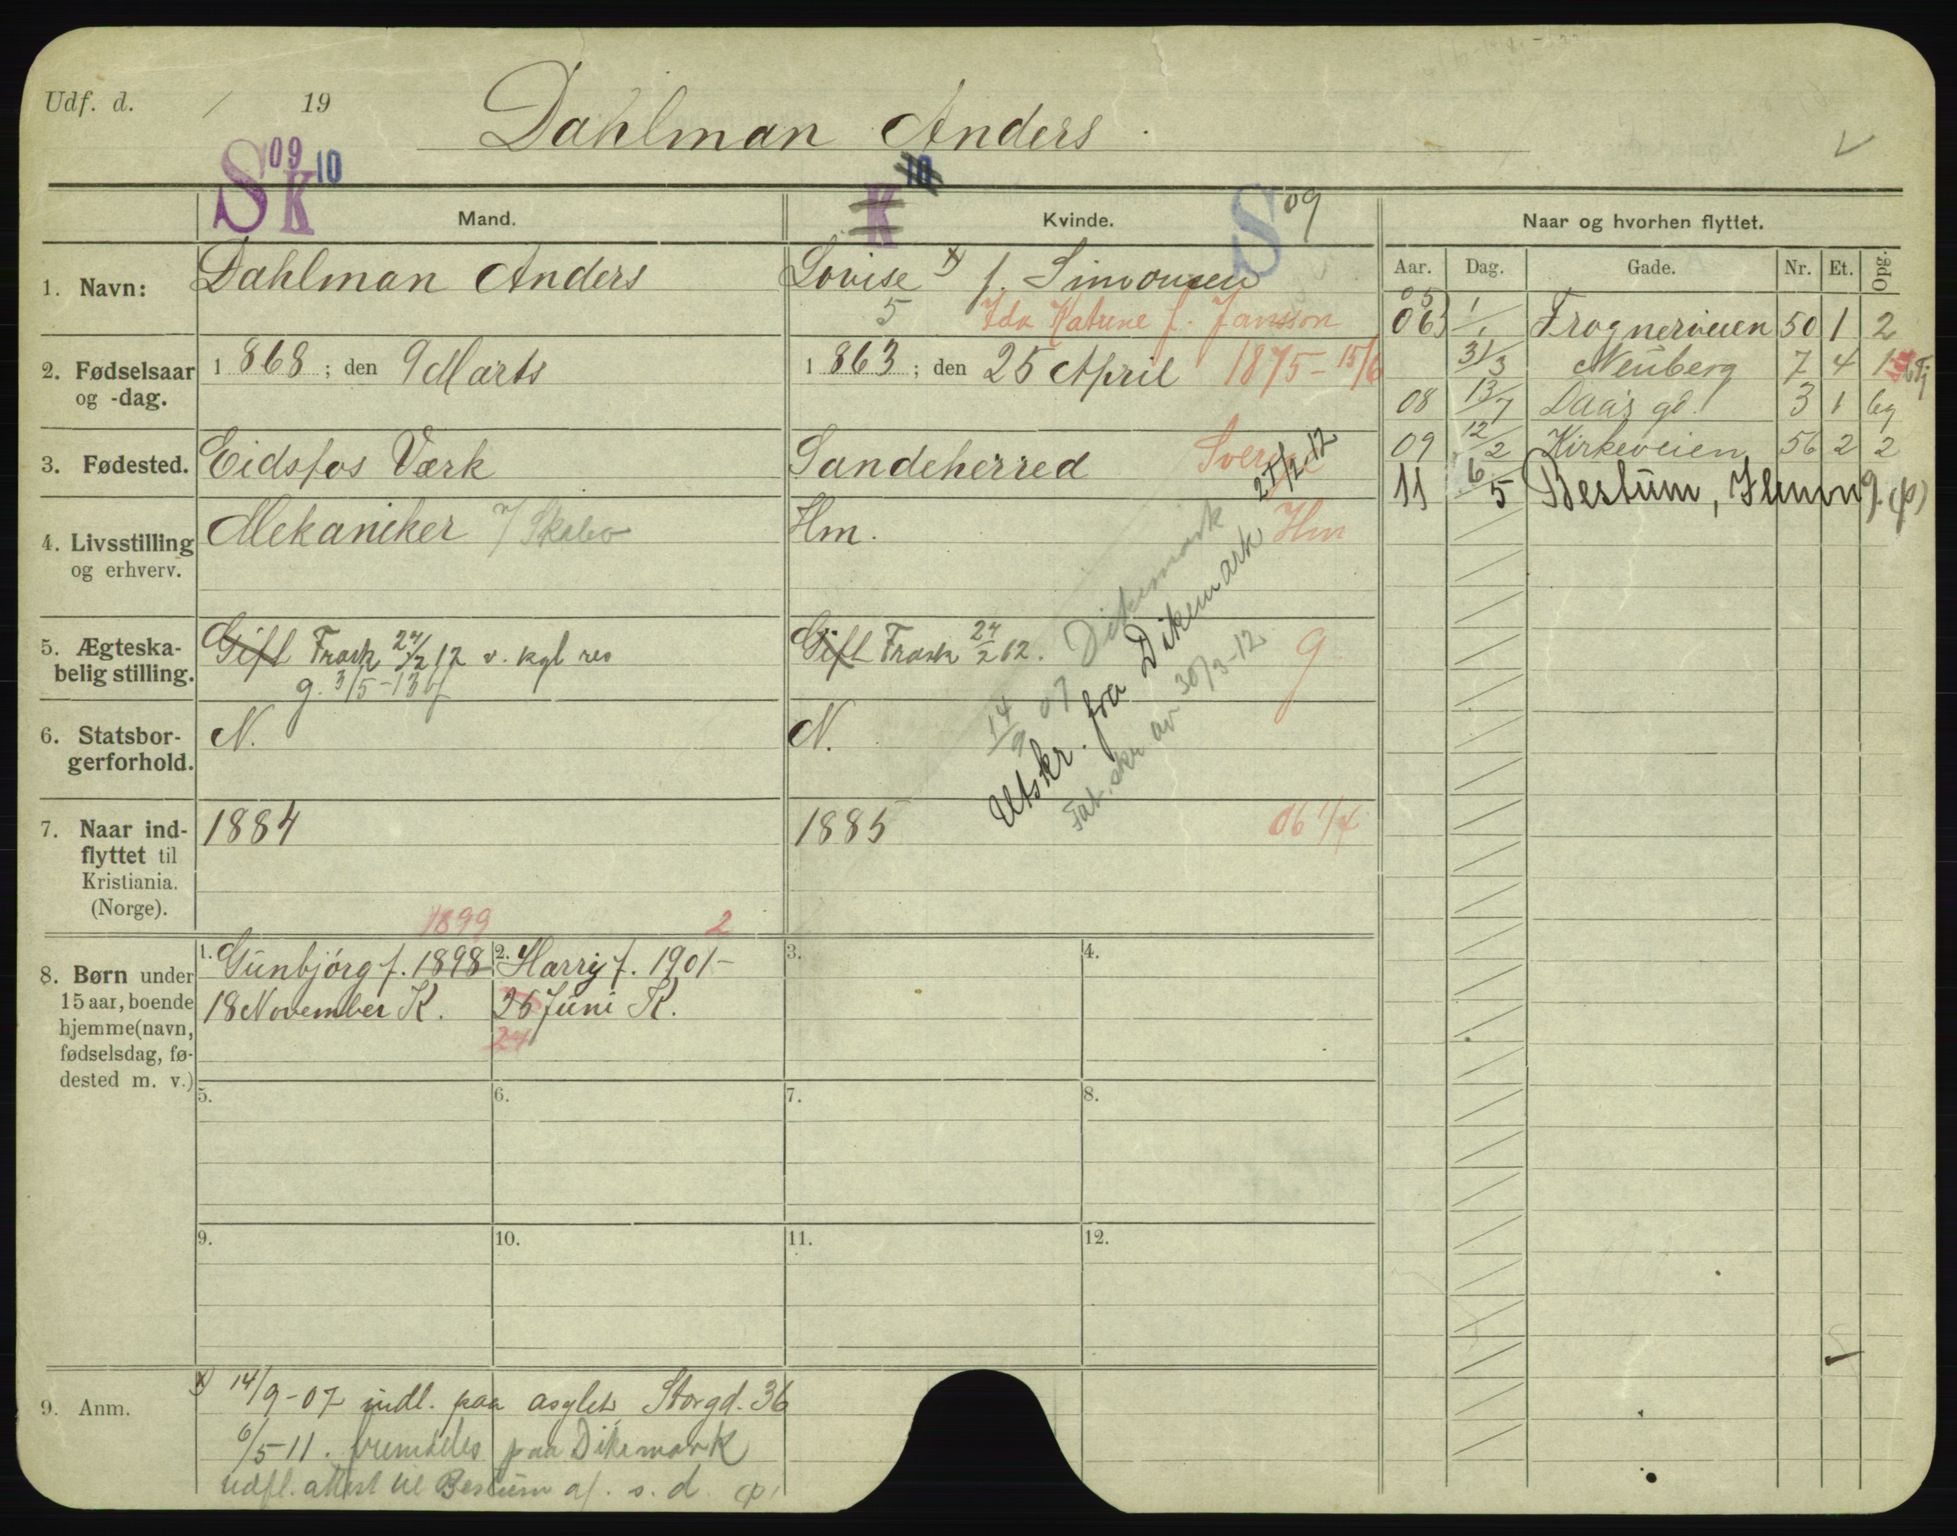 Udf. d. / 19
Dahlman Anders
S 09 K 10
K 10
S 09
Mand.
Kvinde.
Naar og hvorhen flyttet.
Aar. Dag. Gade. Nr. Et. Opg.
1. Navn:
Dahlman Anders
Lovise x) f. Simonsen
5 Ida Katrine f. Jansson
05
06 1/1 Frognerveien 50 1 2
31/3 Neuberg 7 4 1
08 13/7 Daas gd. 3 1 bg
09 12/2 Kirkeveien 56 2 2
11 6/5 Bestum,
2. Fødselsaar og -dag.
1868 ; den 9 Marts
1863 ; den 25 April 1875 - 15/6
3. Fødested.
Eidsfos Værk
Sandeherred Sverige
4. Livsstilling og erhverv.
Mekaniker / Skabo
Hm. Hm
5. Ægteskabelig stilling.
Gift Frask 24/2 12 v. kgl res
g. 3/5-13
Gift Frask 24/2 12. g.
6. Statsborgerforhold.
N.
N.
14/9 07 Dikemark
Utskr. fra Dikemark 27/2-12
Fat. skr av 30/3-12
7. Naar indflyttet til Kristiania. (Norge).
1884
1885 06 1/4
8. Børn under 15 aar, boende hjemme (navn, fødselsdag, fødested m. v.)
1899 2
1. Gunbjørg f. 1898 2. Harry f. 1901- 3. 4.
18 November K. 26 Juni K.
24
5. 6. 7. 8.
9. 10. 11. 12.
9. Anm.
x) 14/9-07 indl. paa asylet, Storgd. 36
6/5-11. fremdeles paa Dikemark
udfl. attest til Bestum af. s. d.